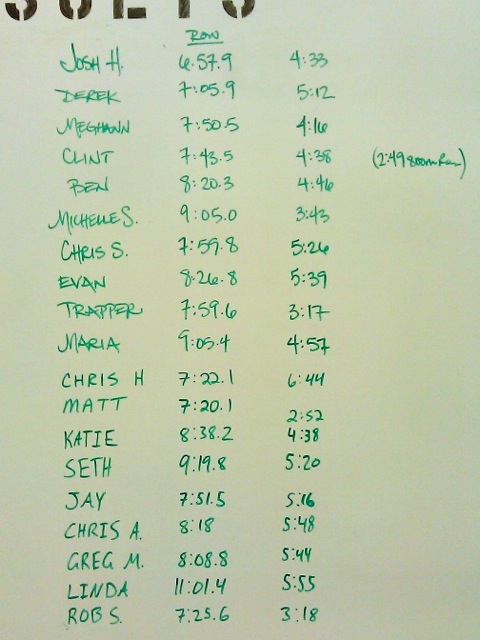 Row
Josh H. 6:57.9 4:33
Derek 7:05.9 5:12
Meghann 7:50.5 4:16
Clint 7:43.5 4:38 (2:49 800m Run)
Ben 8:20.3 4:46
Michelle S. 9:05.0 3:43
Chris S. 7:59.8 5:26
Evan 8:26.8 5:39
Trapper 7:59.6 3:17
Maria 9:05.4 4:57
Chris H 7:22.1 6:44
Matt 7:20.1 2:52
Katie 8:38.2 4:38
Seth 9:19.8 5:20
Jay 7:51.5 5:16
Chris A. 8:18 5:48
Greg M. 8:08.8 5:44
Linda 11:01.4 5:55
Rob S. 7:25.6 3:18